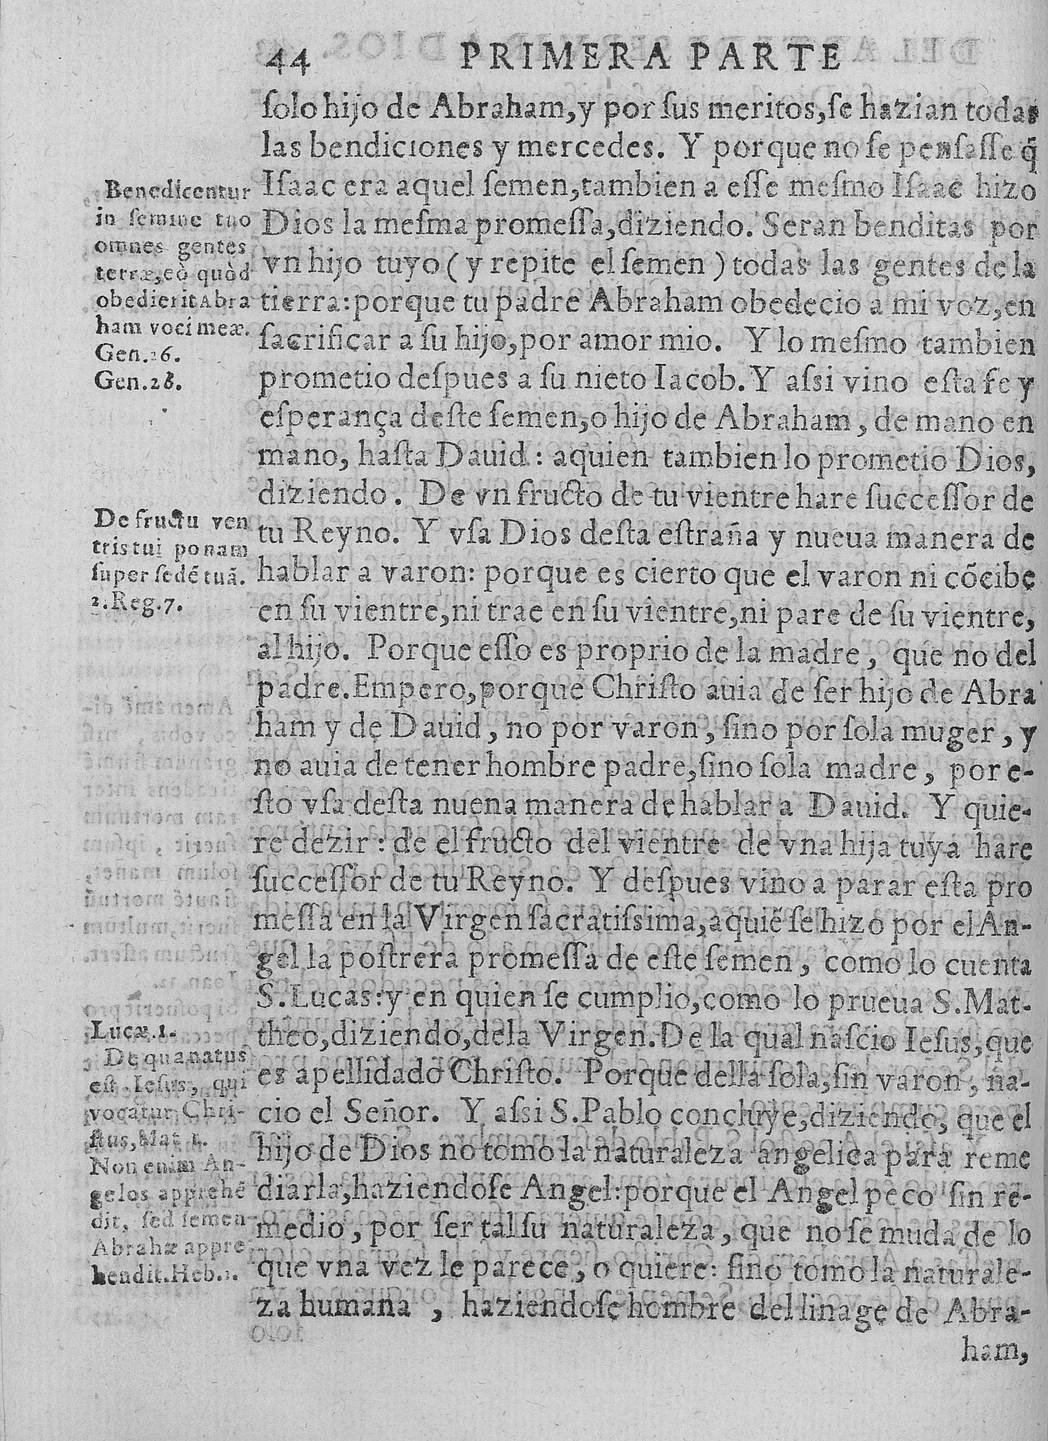 44 PRIMERA PARTE
ſolo hijo de Abraham,y por ſus meritos,ſe hazian todas
las bendiciones y mercedes. Y porque no ſe penſaſſe q̃
Iſaac era aquel ſemen,tambien a eſſe meſmo Iſaac hizo
Dios la meſma promeſſa,diziendo. Seran benditas por
vn hijo tuyo ( y repite el ſemen ) todas las gentes de la
tierra:porque tu padre Abraham obedecio a mi voz,en
ſacrificar a ſu hijo,por amor mio. Y lo meſmo tambien
prometio deſpues a ſu nieto Iacob. Y aſsi vino eſta fe y
eſperança deſte ſemen,o hijo de Abraham, de mano en
mano, haſta Dauid : aquien tambien lo prometio Dios,
diziendo. De vn fructo de tu vientre hare ſucceſſor de
tu Reyno. Y vſa Dios deſta eſtraña y nueua manera de
hablar a varon: porque es cierto que el varon ni cõcibe
en ſu vientre,ni trae en ſu vientre,ni pare de ſu vientre,
al hijo. Porque eſſo es proprio de la madre, que no del
padre. Empero,porque Chriſto auia de ſer hijo de Abra
ham y de Dauid, no por varon, ſino por ſola muger, y
no auia de tener hombre padre,ſino ſola madre, por e-
ſto vſa deſta nueua manera de hablar a Dauid. Y quie-
re dezir : de el fructo del vientre de vna hija tuya hare
ſucceſſor de tu Reyno. Y deſpues vino a parar eſta pro
meſſa en la Virgen ſacratiſsima,aquiẽ ſe hizo por el An-
gel la poſtrera promeſſa de eſte ſemen, como lo cuenta
S.Lucas:y en quien ſe cumplio,como lo prueua S.Mat-
theo,diziendo,dela Virgen. De la qual naſcio Ieſus,que
es apellidado Chriſto. Porque della ſola,ſin varon, na-
cio el Señor. Y aſsi S.Pablo concluye,diziendo, que el
hijo de Dios no tomo la naturaleza angelica para reme
diarla,haziendoſe Angel:porque el Angel peco ſin re-
medio, por ſer tal ſu naturaleza, que no ſe muda de lo
que vna vez le parece, o quiere: ſino tomo la naturale-
za humana , haziendoſe hombre del linage de Abra-
ham,
Benedicentur
in ſemine tuo
omnes gentes
terræ,eò quòd
obedierit Abra
ham voci meæ.
Gen.26.
Gen.28.
De fructu ven
tris tui ponam
ſuper ſedẽ tuã.
2.Reg.7.
Lucæ.1.
De qua natus
eſt Ieſus, qui
vocatur Chri-
ſtus,Mat 1.
Non enim An-
gelos apprehẽ
dit, ſed ſemen
Abrahæ appre
hendit.Heb.